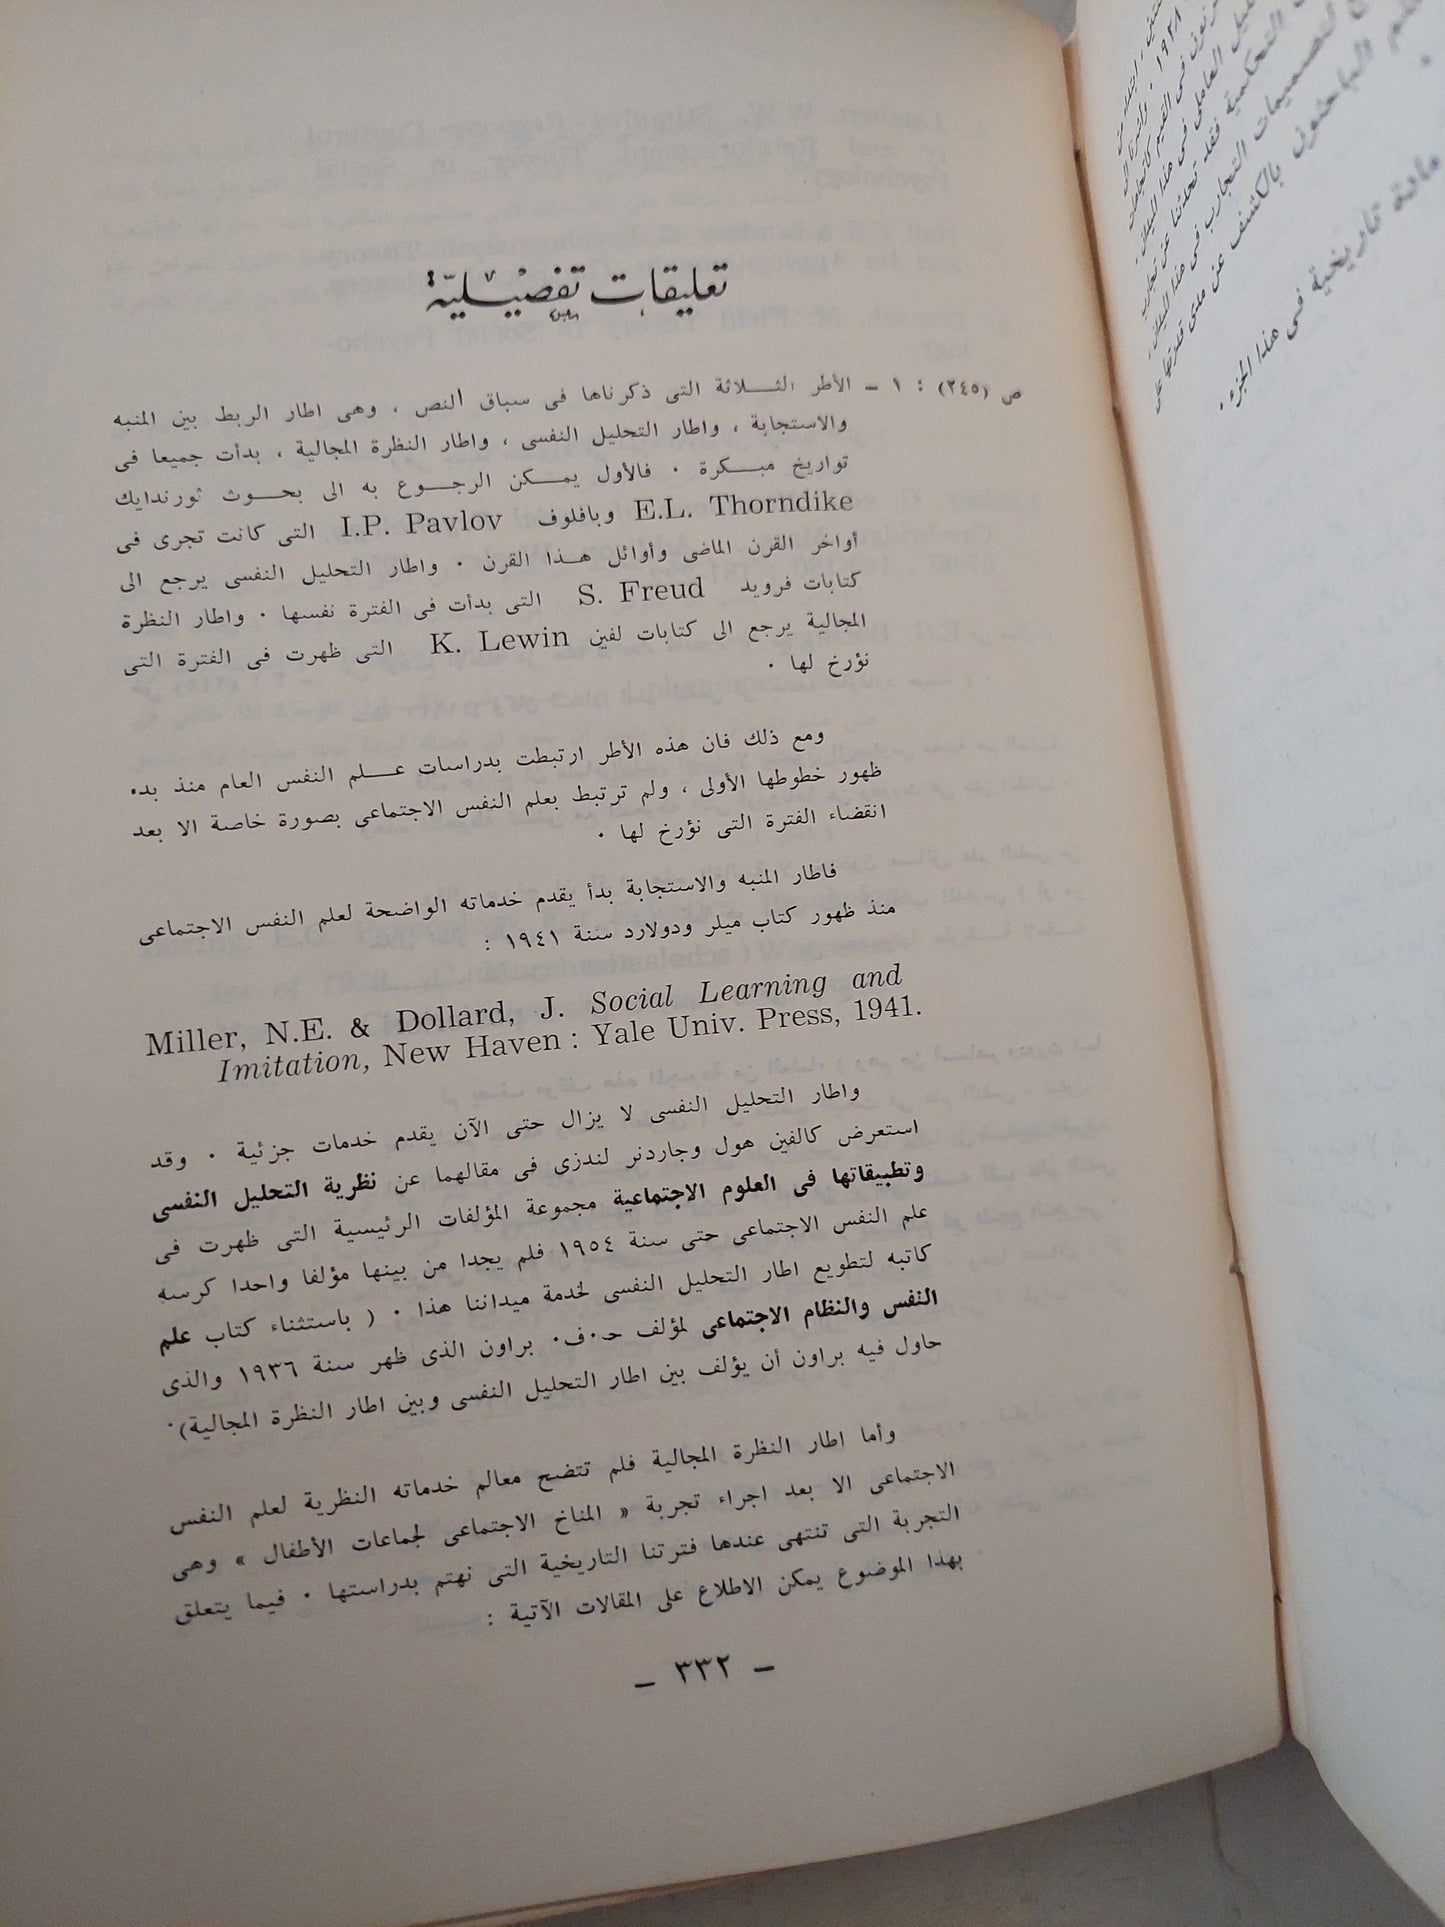 تعليقات تفصيلية
ص (٢٤٥) : ١ – الأطر الثلاثة التى ذكرناها فى سياق النص ، وهى اطار الربط بين المنبه
والاستجابة ، واطار التحليل النفسى ، واطار النظرة المجالية ، بدأت جميعا فى
تواريخ مبكرة . فالأول يمكن الرجوع به الى بحوث ثورندايك
E.L. Thorndike وبافلوف I.P. Pavlov التى كانت تجرى فى
أواخر القرن الماضى وأوائل هذا القرن . واطار التحليل النفسى يرجع الى
كتابات فرويد S. Freud التى بدأت فى الفترة نفسها . واطار النظرة
المجالية يرجع الى كتابات لفين K. Lewin التى ظهرت فى الفترة التى
نؤرخ لها .
ومع ذلك فان هذه الأطر ارتبطت بدراسات علم النفس العام منذ بدء
ظهور خطوطها الأولى ، ولم ترتبط بعلم النفس الاجتماعى بصورة خاصة الا بعد
انقضاء الفترة التى نؤرخ لها .
فاطار المنبه والاستجابة بدأ يقدم خدماته الواضحة لعلم النفس الاجتماعى
منذ ظهور كتاب ميلر ودولارد سنة ١٩٤١ :
Miller, N.E. & Dollard, J. Social Learning and
Imitation, New Haven : Yale Univ. Press, 1941.
واطار التحليل النفسى لا يزال حتى الآن يقدم خدمات جزئية . وقد
استعرض كالفين هول وجاردنر لندزى فى مقالهما عن نظرية التحليل النفسى
وتطبيقاتها فى العلوم الاجتماعية مجموعة المؤلفات الرئيسية التى ظهرت فى
علم النفس الاجتماعى حتى سنة ١٩٥٤ فلم يجدا من بينها مؤلفا واحدا كرسه
كاتبه لتطويع اطار التحليل النفسى لخدمة ميداننا هذا . ( باستثناء كتاب علم
النفس والنظام الاجتماعى لمؤلف ح.ف. براون الذى ظهر سنة ١٩٣٦ والذى
حاول فيه براون أن يؤلف بين اطار التحليل النفسى وبين اطار النظرة المجالية).
وأما اطار النظرة المجالية فلم تتضح معالم خدماته النظرية لعلم النفس
الاجتماعى الا بعد اجراء تجربة « المناخ الاجتماعى لجماعات الأطفال » وهى
التجربة التى تنتهى عندها فترتنا التاريخية التى نهتم بدراستها . فيما يتعلق
بهذا الموضوع يمكن الاطلاع على المقالات الآتية :
– ٣٣٢ –
التصميمات التجارب فى هذا الميدان
الباحثون بالكشف عن مدى قدرتها على
مادة تاريخية فى هذا الجزء .